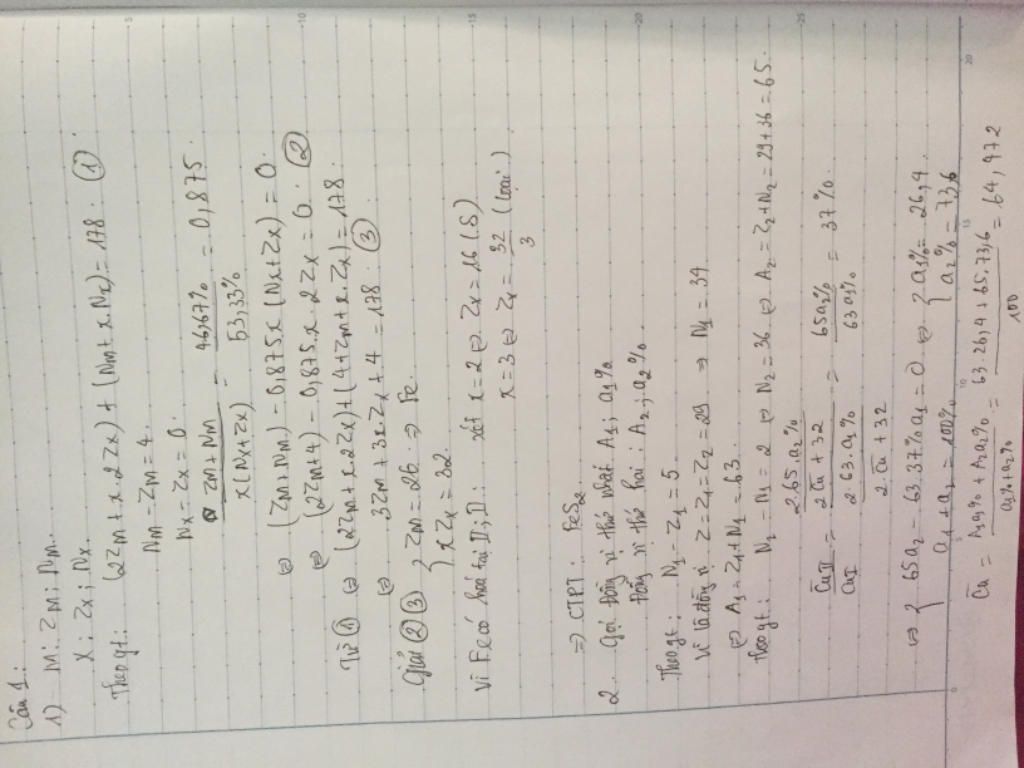 Câu 1:
1) - M: ZM; NM.
X: ZX; NX.
Theo gt: (2ZM + x.2ZX) + (NM + x.NX) = 178. (1)
NM - ZM = 4.
NX - ZX = 0.
(ZM + NM) / (x(NX + ZX)) = 46,67% / 53,33% = 0,875.
⇔ (ZM + NM) - 0,875.x (NX + ZX) = 0.
⇔ (2ZM + 4) - 0,875.x.2ZX = 0. (2)
Từ (1) ⇔ (2ZM + x.2ZX) + (4 + ZM + x.ZX) = 178.
⇔ 3ZM + 3x.ZX + 4 = 178. (3)
Giải (2)(3) { ZM = 26. ⇒ Fe.
x ZX = 32.
Vì Fe có hoá trị II; III: xét x = 2 ⇔ ZX = 16 (S)
x = 3 ⇔ ZX = 32/3 (loại)
⇒ CTPT: FeS2.
2. Gọi đồng vị thứ nhất A1; a1%
đồng vị thứ hai: A2; a2%.
Theo gt: N1 - Z1 = 5
Vì là đồng vị Z = Z1 = Z2 = 29 ⇒ N1 = 34
⇔ A1 = Z1 + N1 = 63.
theo gt: N2 - N1 = 2 ⇔ N2 = 36 ⇔ A2 = Z2 + N2 = 29 + 36 = 65.
CuII / CuI = (2.65.a2% / (2C̅u + 32)) / (2.63.a1% / (2.C̅u + 32)) = 65a2% / 63a1% = 37%.
⇔ { 65a2 - 63.37%a1 = 0 ⇔ { a1% = 26,4.
a1 + a2 = 100% a2% = 73,6
C̅u = (A1a1% + A2a2%) / (a1% + a2%) = (63.26,4 + 65.73,6) / 100 = 64,472